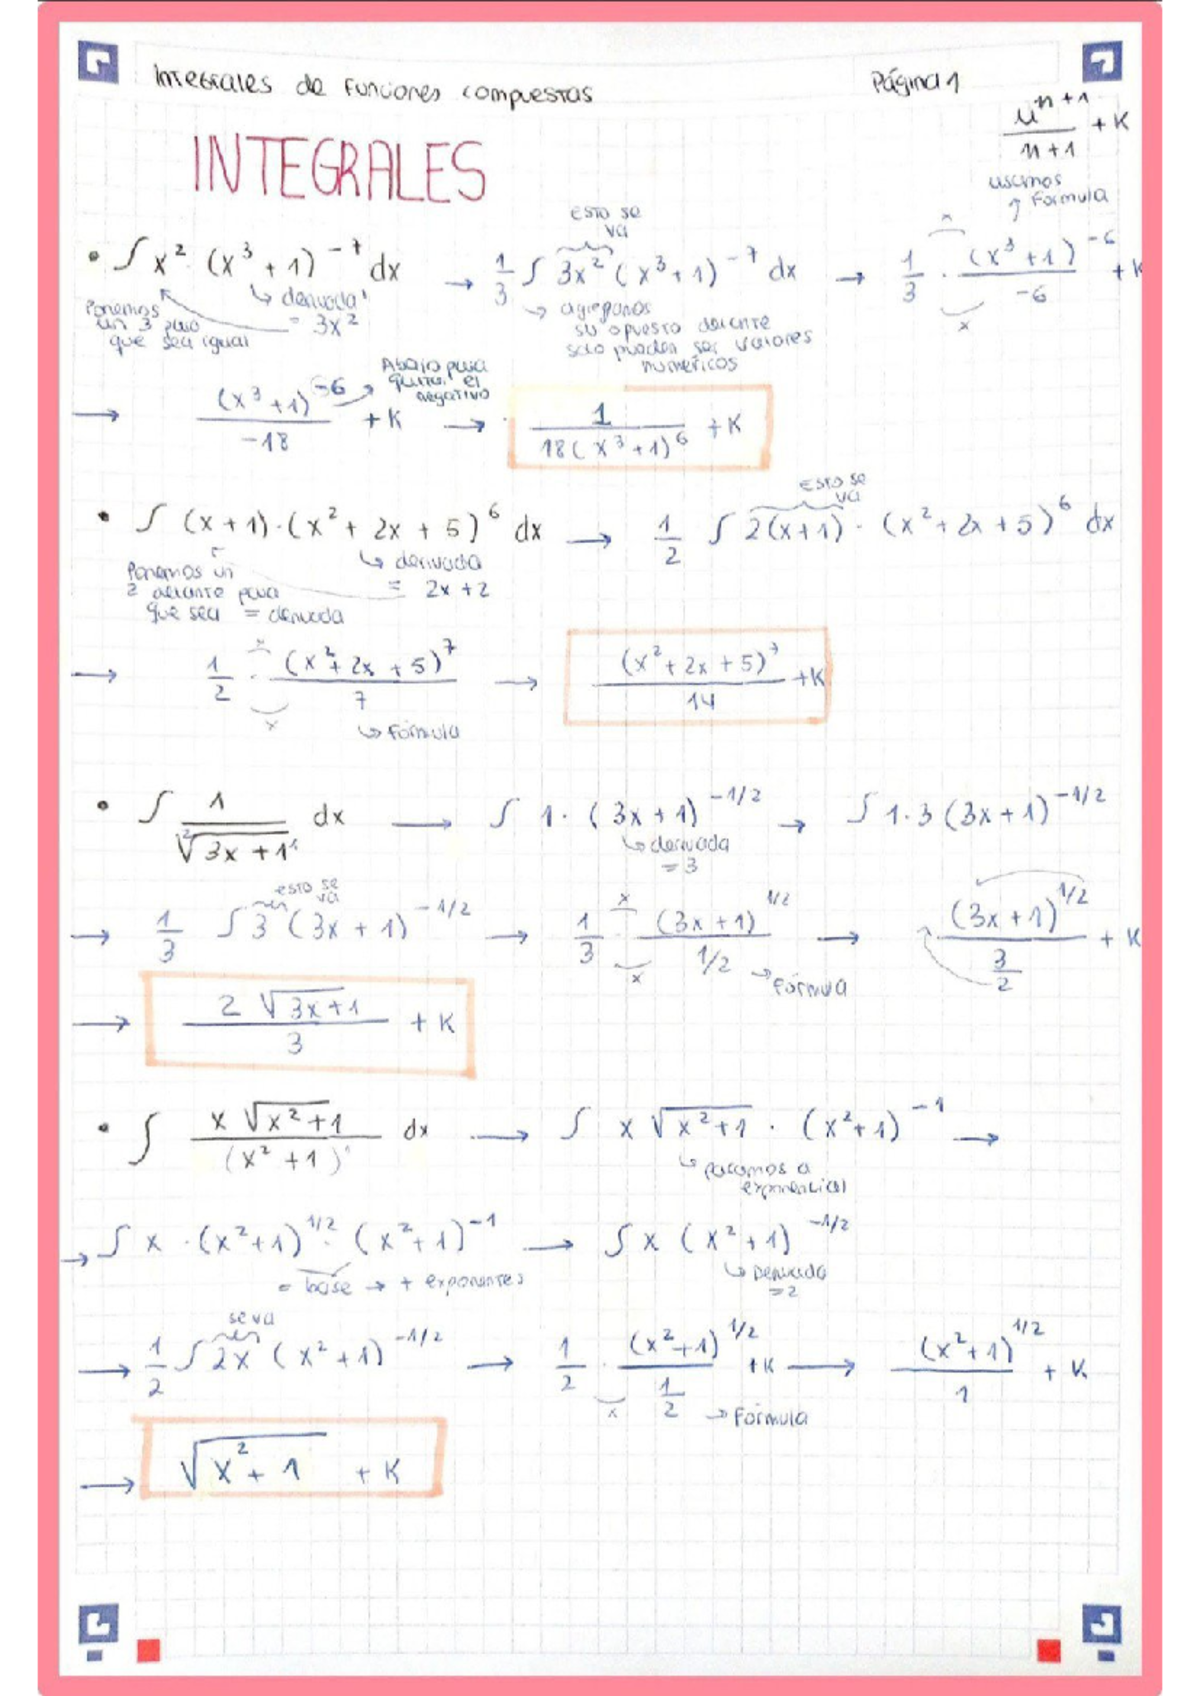 Integrales de Funciones compuestas Página 1
INTEGRALES
u^(n+1)/(n+1) + K
usamos Fórmula
• ∫ x² · (x³ + 1)^-7 dx → 1/3 ∫ 3x² (x³ + 1)^-7 dx → 1/3 · (x³ + 1)^-6/-6 + K
Esto se va
↳ derivada = 3x²
Ponemos un 3 para que sea igual
↳ agregamos su opuesto delante solo pueden ser valores numéricos
→ (x³ + 1)^-6/-18 + K → 1/(18(x³ + 1)^6) + K
Abajo para quitar el negativo
• ∫ (x + 1) · (x² + 2x + 5)^6 dx → 1/2 ∫ 2(x + 1) · (x² + 2x + 5)^6 dx
Esto se va
↳ derivada = 2x + 2
Ponemos un 2 delante para que sea = derivada
→ 1/2 · (x² + 2x + 5)^7/7 → (x² + 2x + 5)^7/14 + K
↳ Fórmula
• ∫ 1/²√(3x + 1) dx → ∫ 1 · (3x + 1)^-1/2 → ∫ 1 · 3 (3x + 1)^-1/2
↳ derivada = 3
esto se va
→ 1/3 ∫ 3 (3x + 1)^-1/2 → 1/3 · (3x + 1)^1/2/(1/2) → (3x + 1)^1/2/(3/2) + K
→ Fórmula
→ 2√(3x + 1)/3 + K
• ∫ x√(x² + 1)/(x² + 1) dx → ∫ x√(x² + 1) · (x² + 1)^-1 →
↳ pasamos a exponencial
→ ∫ x · (x² + 1)^1/2 · (x² + 1)^-1 → ∫ x (x² + 1)^-1/2
= base → + exponentes
↳ Derivada = 2
se va
→ 1/2 ∫ 2x (x² + 1)^-1/2 → 1/2 · (x² + 1)^1/2/(1/2) + K → (x² + 1)^1/2/1 + K
→ Fórmula
→ √(x² + 1) + K